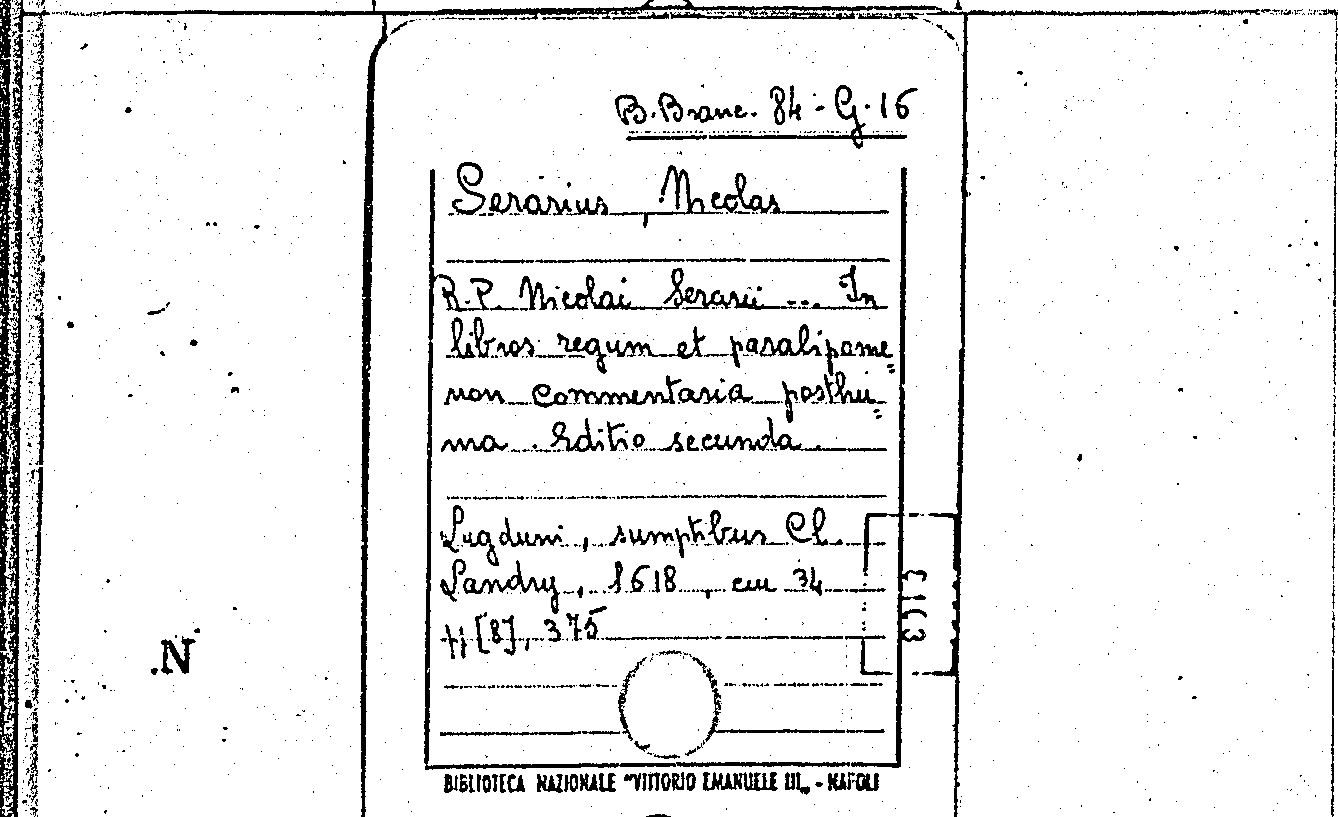 B. Branc. 84 - G. 16
Serarius, Nicolas
R. P. Nicolai Serarii ... In
libros regum et paralipome=
non commentaria posthu=
ma. Editio secunda.
Lugduni, sumptibus Cl.
Landry, 1618, cm 34
pp [8], 375
N.
BIBLIOTECA NAZIONALE "VITTORIO EMANUELE III„ - NAPOLI